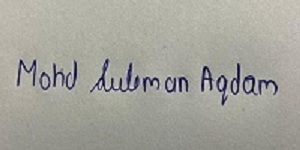 Mohd Suleman Aqdam